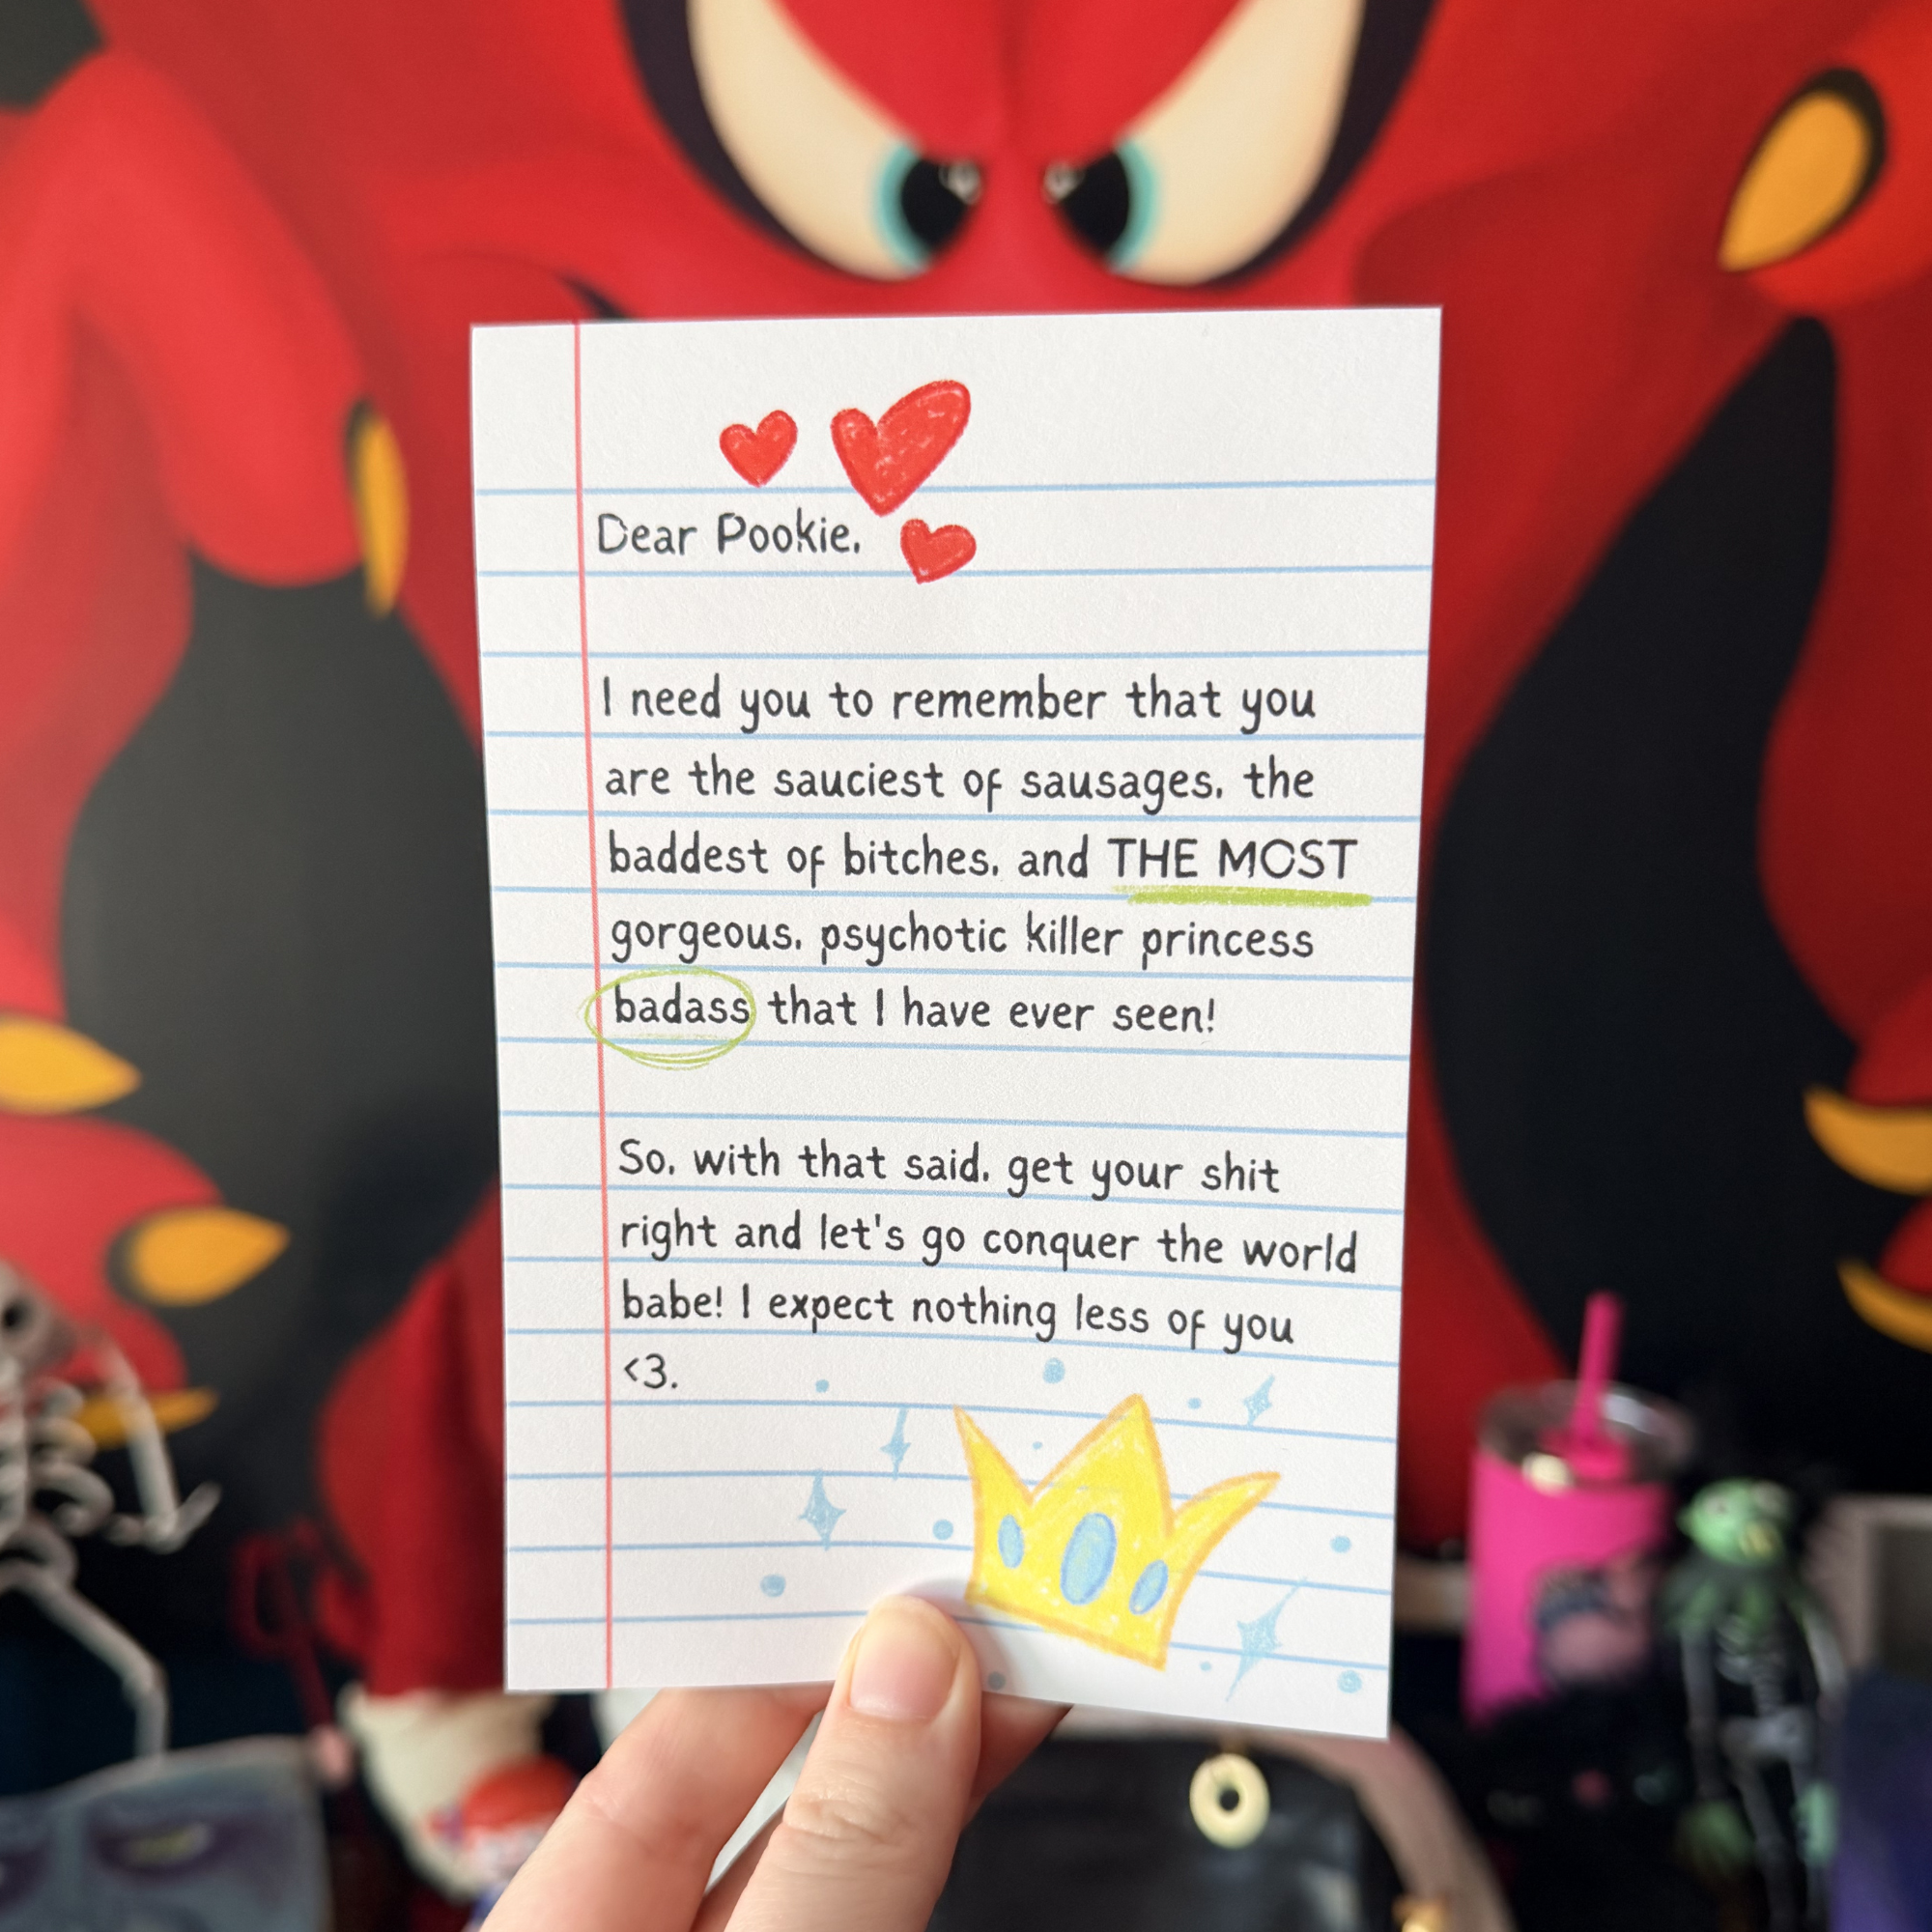 Dear Pookie,
I need you to remember that you
are the sauciest of sausages, the
baddest of bitches, and THE MOST
gorgeous, psychotic killer princess
badass that I have ever seen!
So, with that said, get your shit
right and let's go conquer the world
babe! I expect nothing less of you
<3.